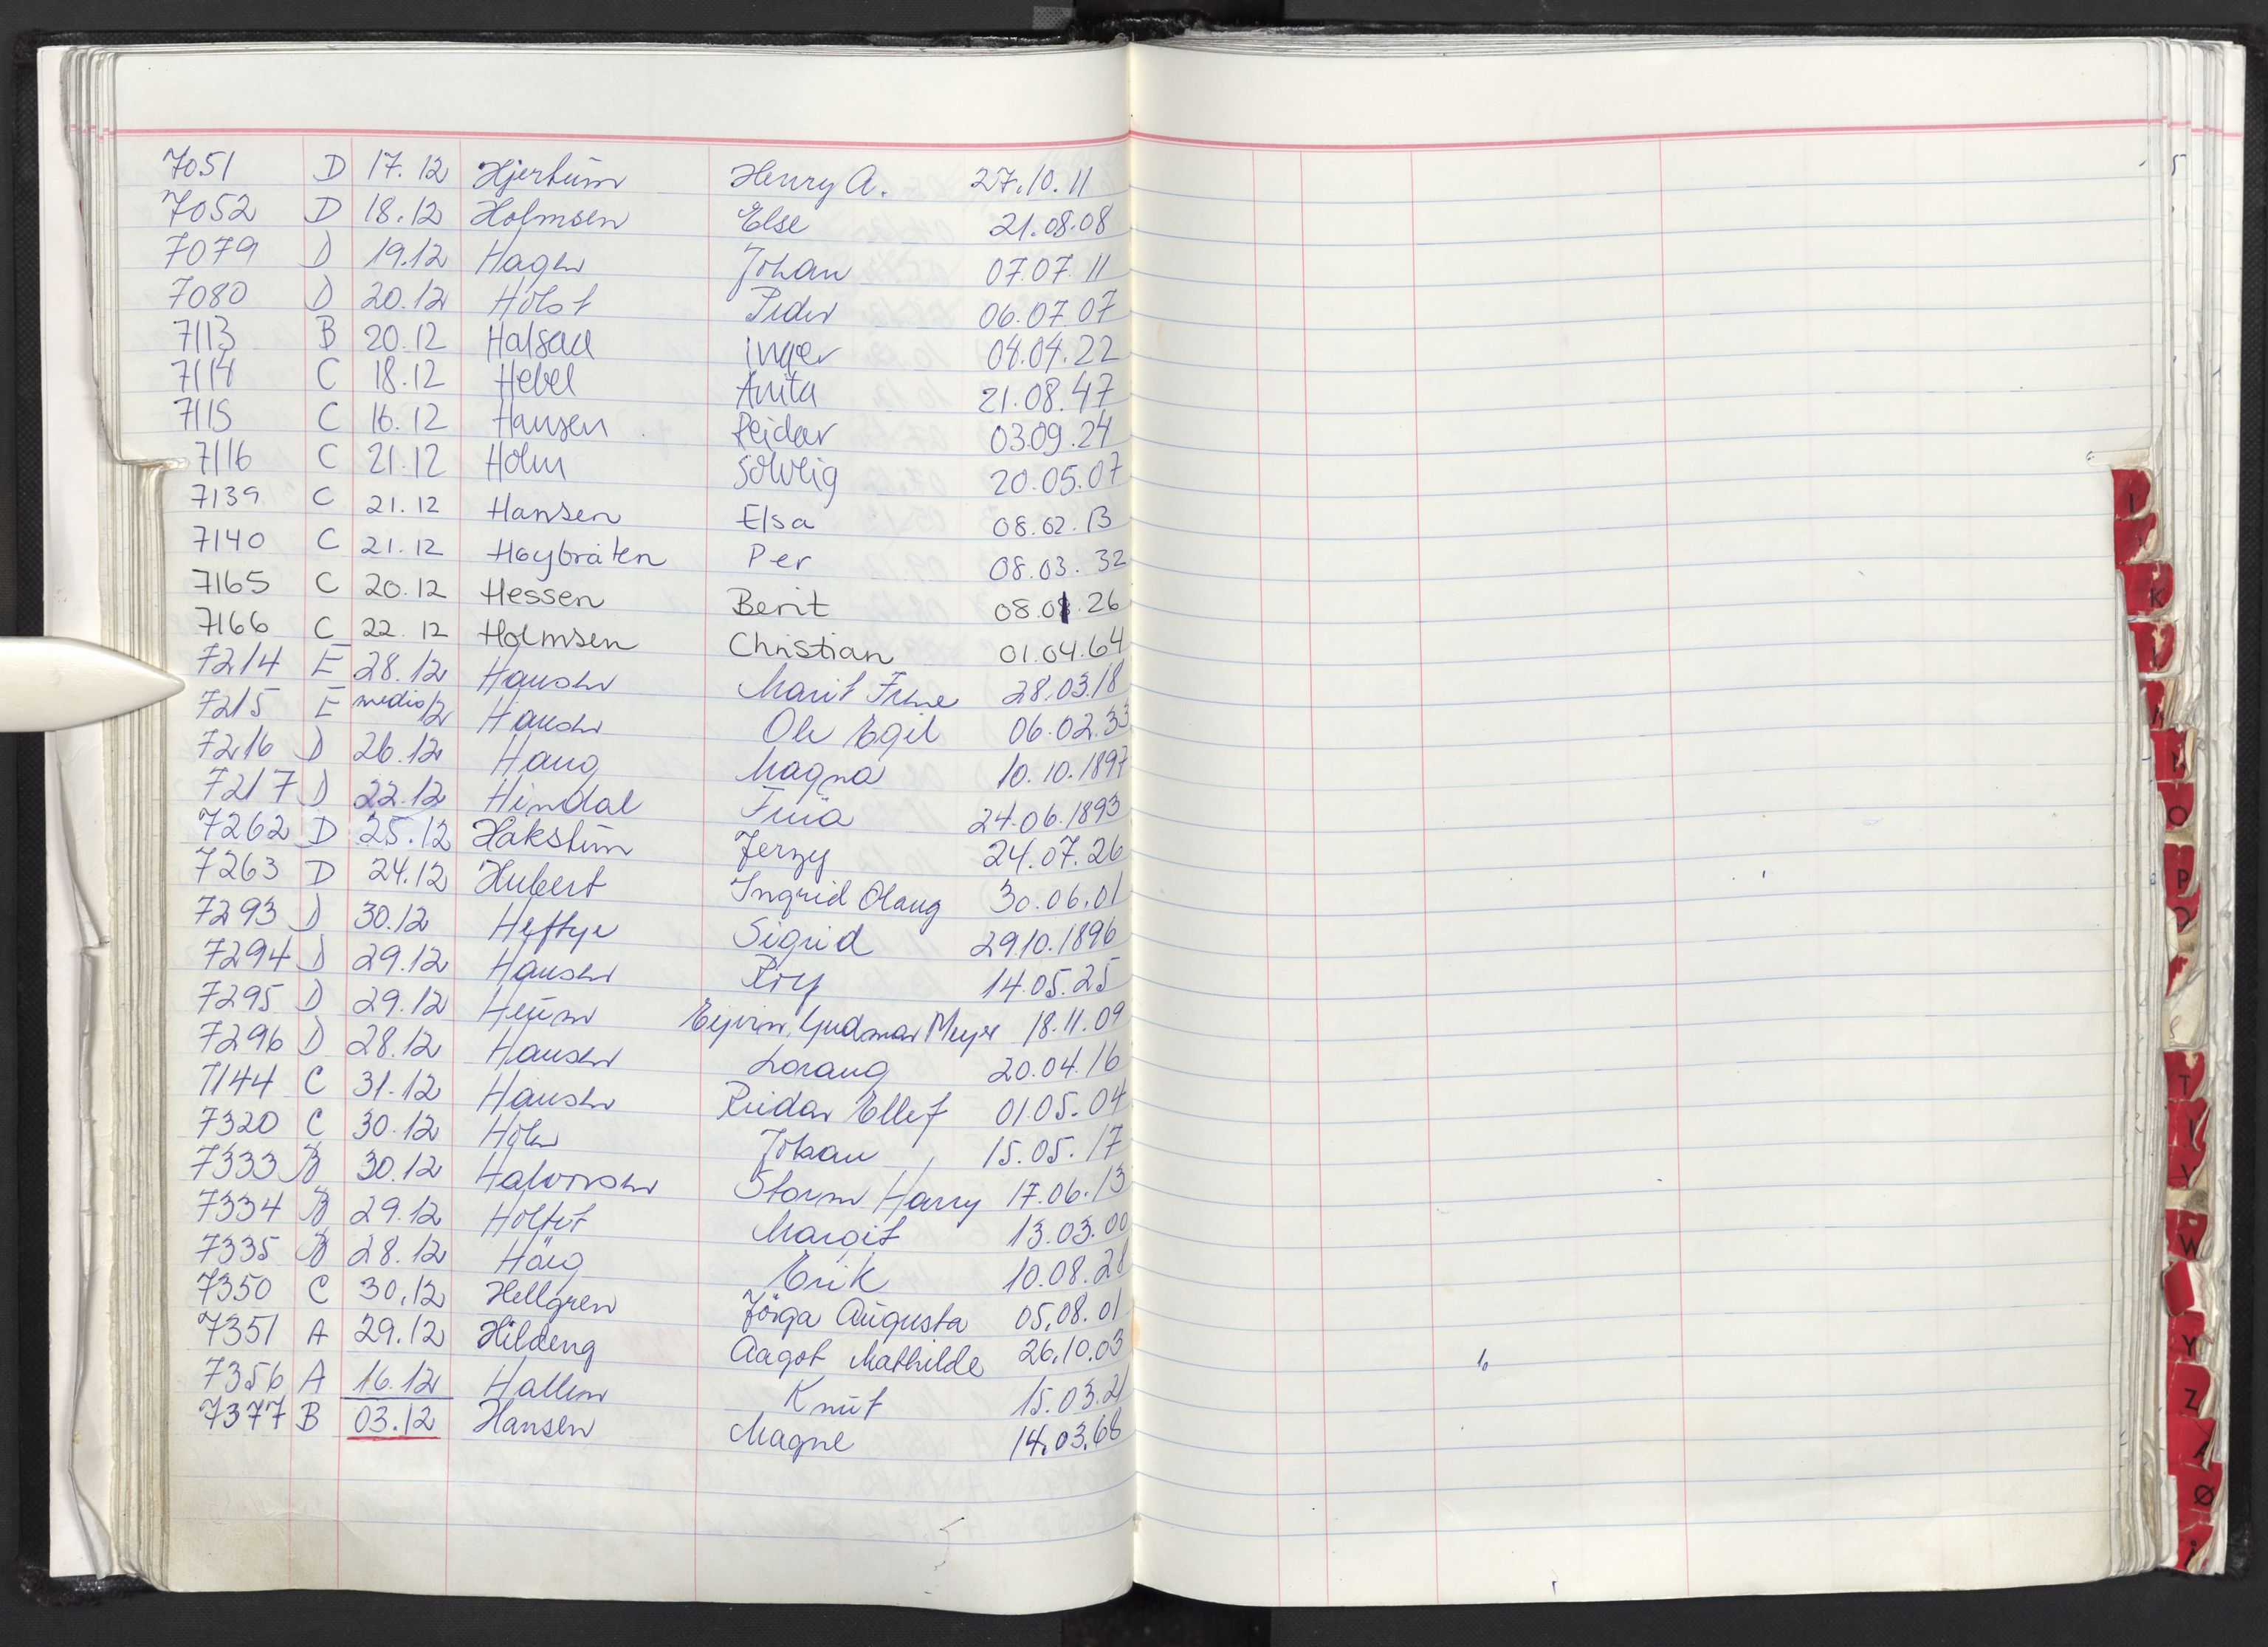 7051 D 17.12 Hjertum Henry A. 27.10.11
7052 D 18.12 Holmsen Else 21.08.08
7079 D 19.12 Hagen Johan 07.07.11
7080 D 20.12 Holst Peder 06.07.07
7113 B 20.12 Halsall Inger 04.04.22
7114 C 18.12 Hebel Anita 21.08.47
7115 C 16.12 Hansen Reidar 03.09.24
7116 C 21.12 Holm Solveig 20.05.07
7139 C 21.12 Hansen Elsa 08.02.13
7140 C 21.12 Høybråten Per 08.03.32
7165 C 20.12 Hessen Berit 08.01.26
7166 C 22.12 Holmsen Christian 01.04.64
7214 E 28.12 Hansen Marit Irene 28.03.18
7215 E medio/12 Hansen Ole Egil 06.02.33
7216 D 26.12 Haug Magna 10.10.1897
7217 D 22.12 Hindal 24.06.1893
7262 D 25.12 Jerzy 24.07.26
7263 D 24.12 Hubert Ingrid Olaug 30.06.01
7293 D 30.12 Heftye Sigrid 29.10.1896
7294 D 29.12 Hansen Roy 14.05.25
7295 D 29.12 Heum Gudmar Meyer 18.11.09
7296 D 28.12 Hansen Lorang 20.04.16
7144 C 31.12 Hansen Reidar Ellef 01.05.04
7320 C 30.12 Johan 15.05.17
7333 B 30.12 Halvorsen Storm Harry 17.06.13
7334 B 29.12 Holtet Margit 13.03.00
7335 B 28.12 Haug Erik 10.08.28
7350 C 30.12 Hellgren Augusta 05.08.01
7351 A 29.12 Hildeng Aagot Mathilde 26.10.03
7356 A 16.12 Hallem Knut 15.03.21
7377 B 03.12 Hansen Magne 14.03.68
I
K
O
P
T
V
W
Y
Z
Ø